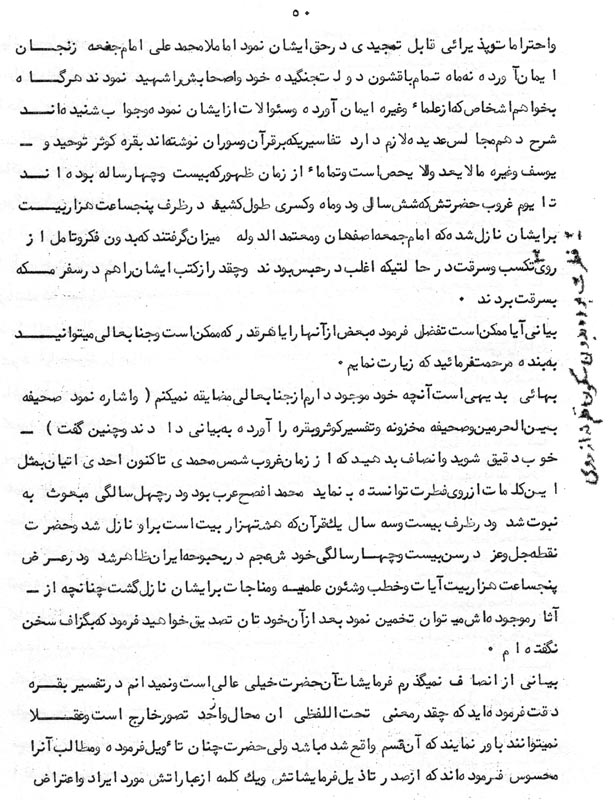 ٥٠
واحترامات وپذیرائی قابل تمجیدی در حق ایشان نمود اما ملا محمد علی امام جمعه زنجان
ایمان آورده نه ماه تمام باقشون دولت جنگیده خود و اصحابش را شهید نمودند هرگاه
بخواهم اشخاص که از علماء وغیره ایمان آورده وسئوالات از ایشان نموده وجواب شنیده اند
شرح دهم مجالس عدیده لازم دارد تفاسیریکه بر قرآن وسوران نوشته اند بقره کوثر توحید و
یوسف وغیره مالا یعد ولا یحص است وتماماً از زمان ظهور که بیست وچهار ساله بوده اند
تا یوم غروب حضرتش که شش سال ودوماه وکسری طول کشید در ظرف پنجساعت هزار بیت
برایشان نازل شده که امام جمعه اصفهان ومعتمد الدوله میزان گرفتند که بدون فکر وتامل از
روی تکسب وسرقت در حالتیکه اغلب در حبس بودند وچقدر از کتب ایشان را هم در سفر مکه
بسرقت بردند ٠
بیانی آیا ممکن است تفضل فرموده بعض از آنها را یا هر قدر که ممکن است وجنابعالی میتوانید
به بنده مرحمت فرمائید که زیارت نمایم ٠
بهائی بدیهی است آنچه خود موجود دارم از جنابعالی مضایقه نمیکنم ( واشاره نمود صحیفه
بین الحرمین وصحیفه مخزونه وتفسیر کوثر وبقره را آورده به بیانی دادند وچنین گفت )
خوب دقیق شوید وانصاف بدهید که از زمان غروب شمس محمدی تاکنون احدی اتیان بمثل
این کلمات از روی فطرت توانسته بنماید محمد افصح عرب بود ودر چهل سالگی مبعوث به
نبوت شد ودر ظرف بیست وسه سال یك قرآن که هشتهزار بیت است براو نازل شد وحضرت
نقطه جل وعز در سن بیست وچهار سالگی خودش عجم در بحبوحه ایران ظاهر شد ودر عرض
پنجساعت هزار بیت آیات وخطب وشئون علمیه ومناجات برایشان نازل گشت چنانچه از
آثار موجوده اش میتوان تخمین نمود بعد از آن خودتان تصدیق خواهید فرمود که بگزاف سخن
نگفته ام ٠
بیانی از انصاف نمیگذرم فرمایشات آن حضرت خیلی عالی است ونمیدانم در تفسیر بقره
دقت فرموده اید که چقدر معنی تحت اللفظی ان محال واز حد تصور خارج است وعقلا
نمیتوانند باور نمایند که آن قسم واقع شده باشد ولی حضرت چنان تاءویل فرموده ومطالب آنرا
محسوس فرموده اند که از صدر تا ذیل فرمایشاتش ویك کلمه از عباراتش مورد ایراد واعتراض
فطرت بوده بدون سکون قلم نه از روی